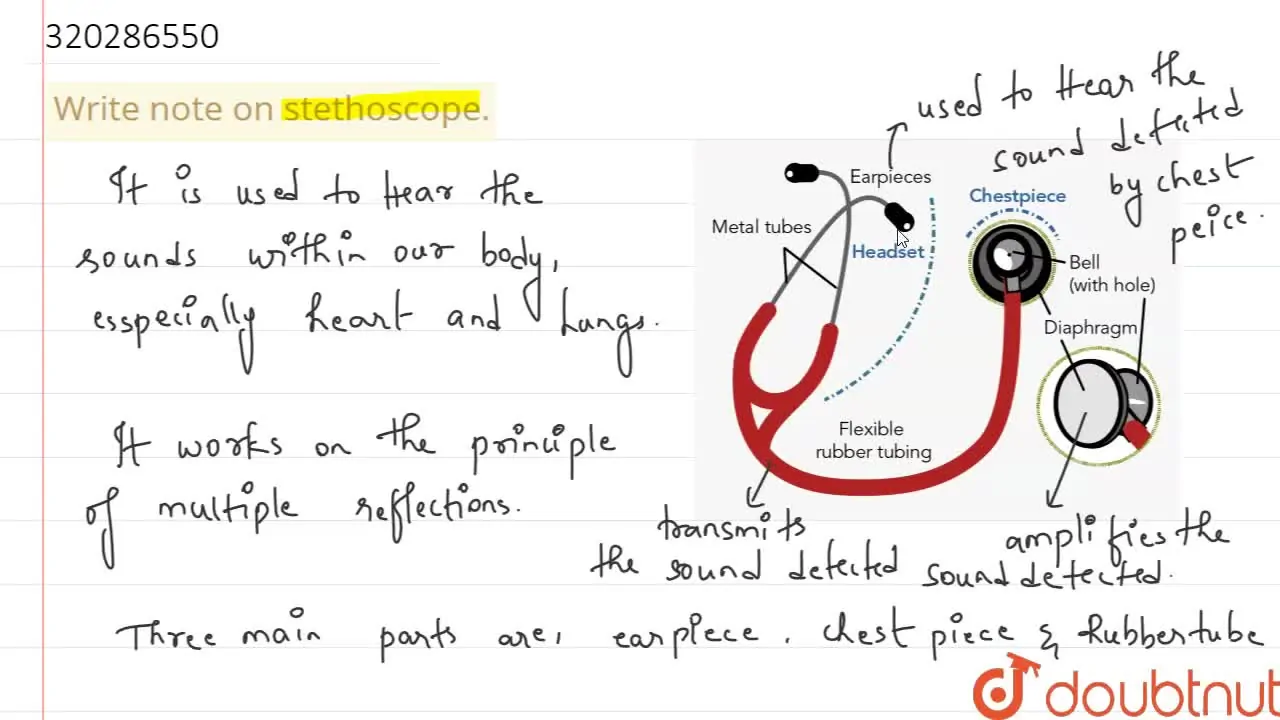 320286550
Write note on stethoscope.
It is used to Hear the
sounds within our body,
esspecially heart and Lungs.
It works on the principle
of multiple reflections.
Three main parts are, earpiece, chest piece & Rubbertube
used to Hear the
sound detected
by chest
peice.
Earpieces
Metal tubes
Headset
Chestpiece
Bell
(with hole)
Diaphragm
Flexible
rubber tubing
transmits
the sound detected
amplifies the
sound detected.
doubtnut